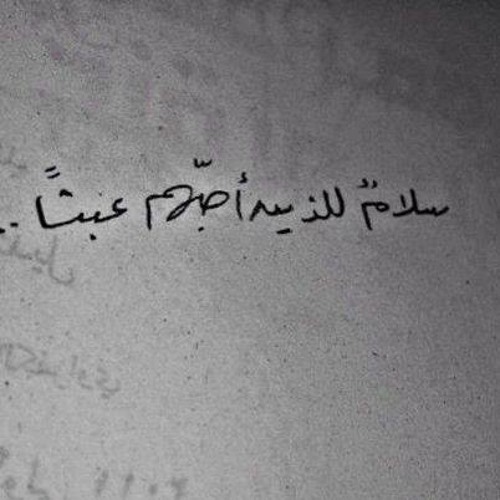 سلامٌ للذين أحبّهم عبثاً ..